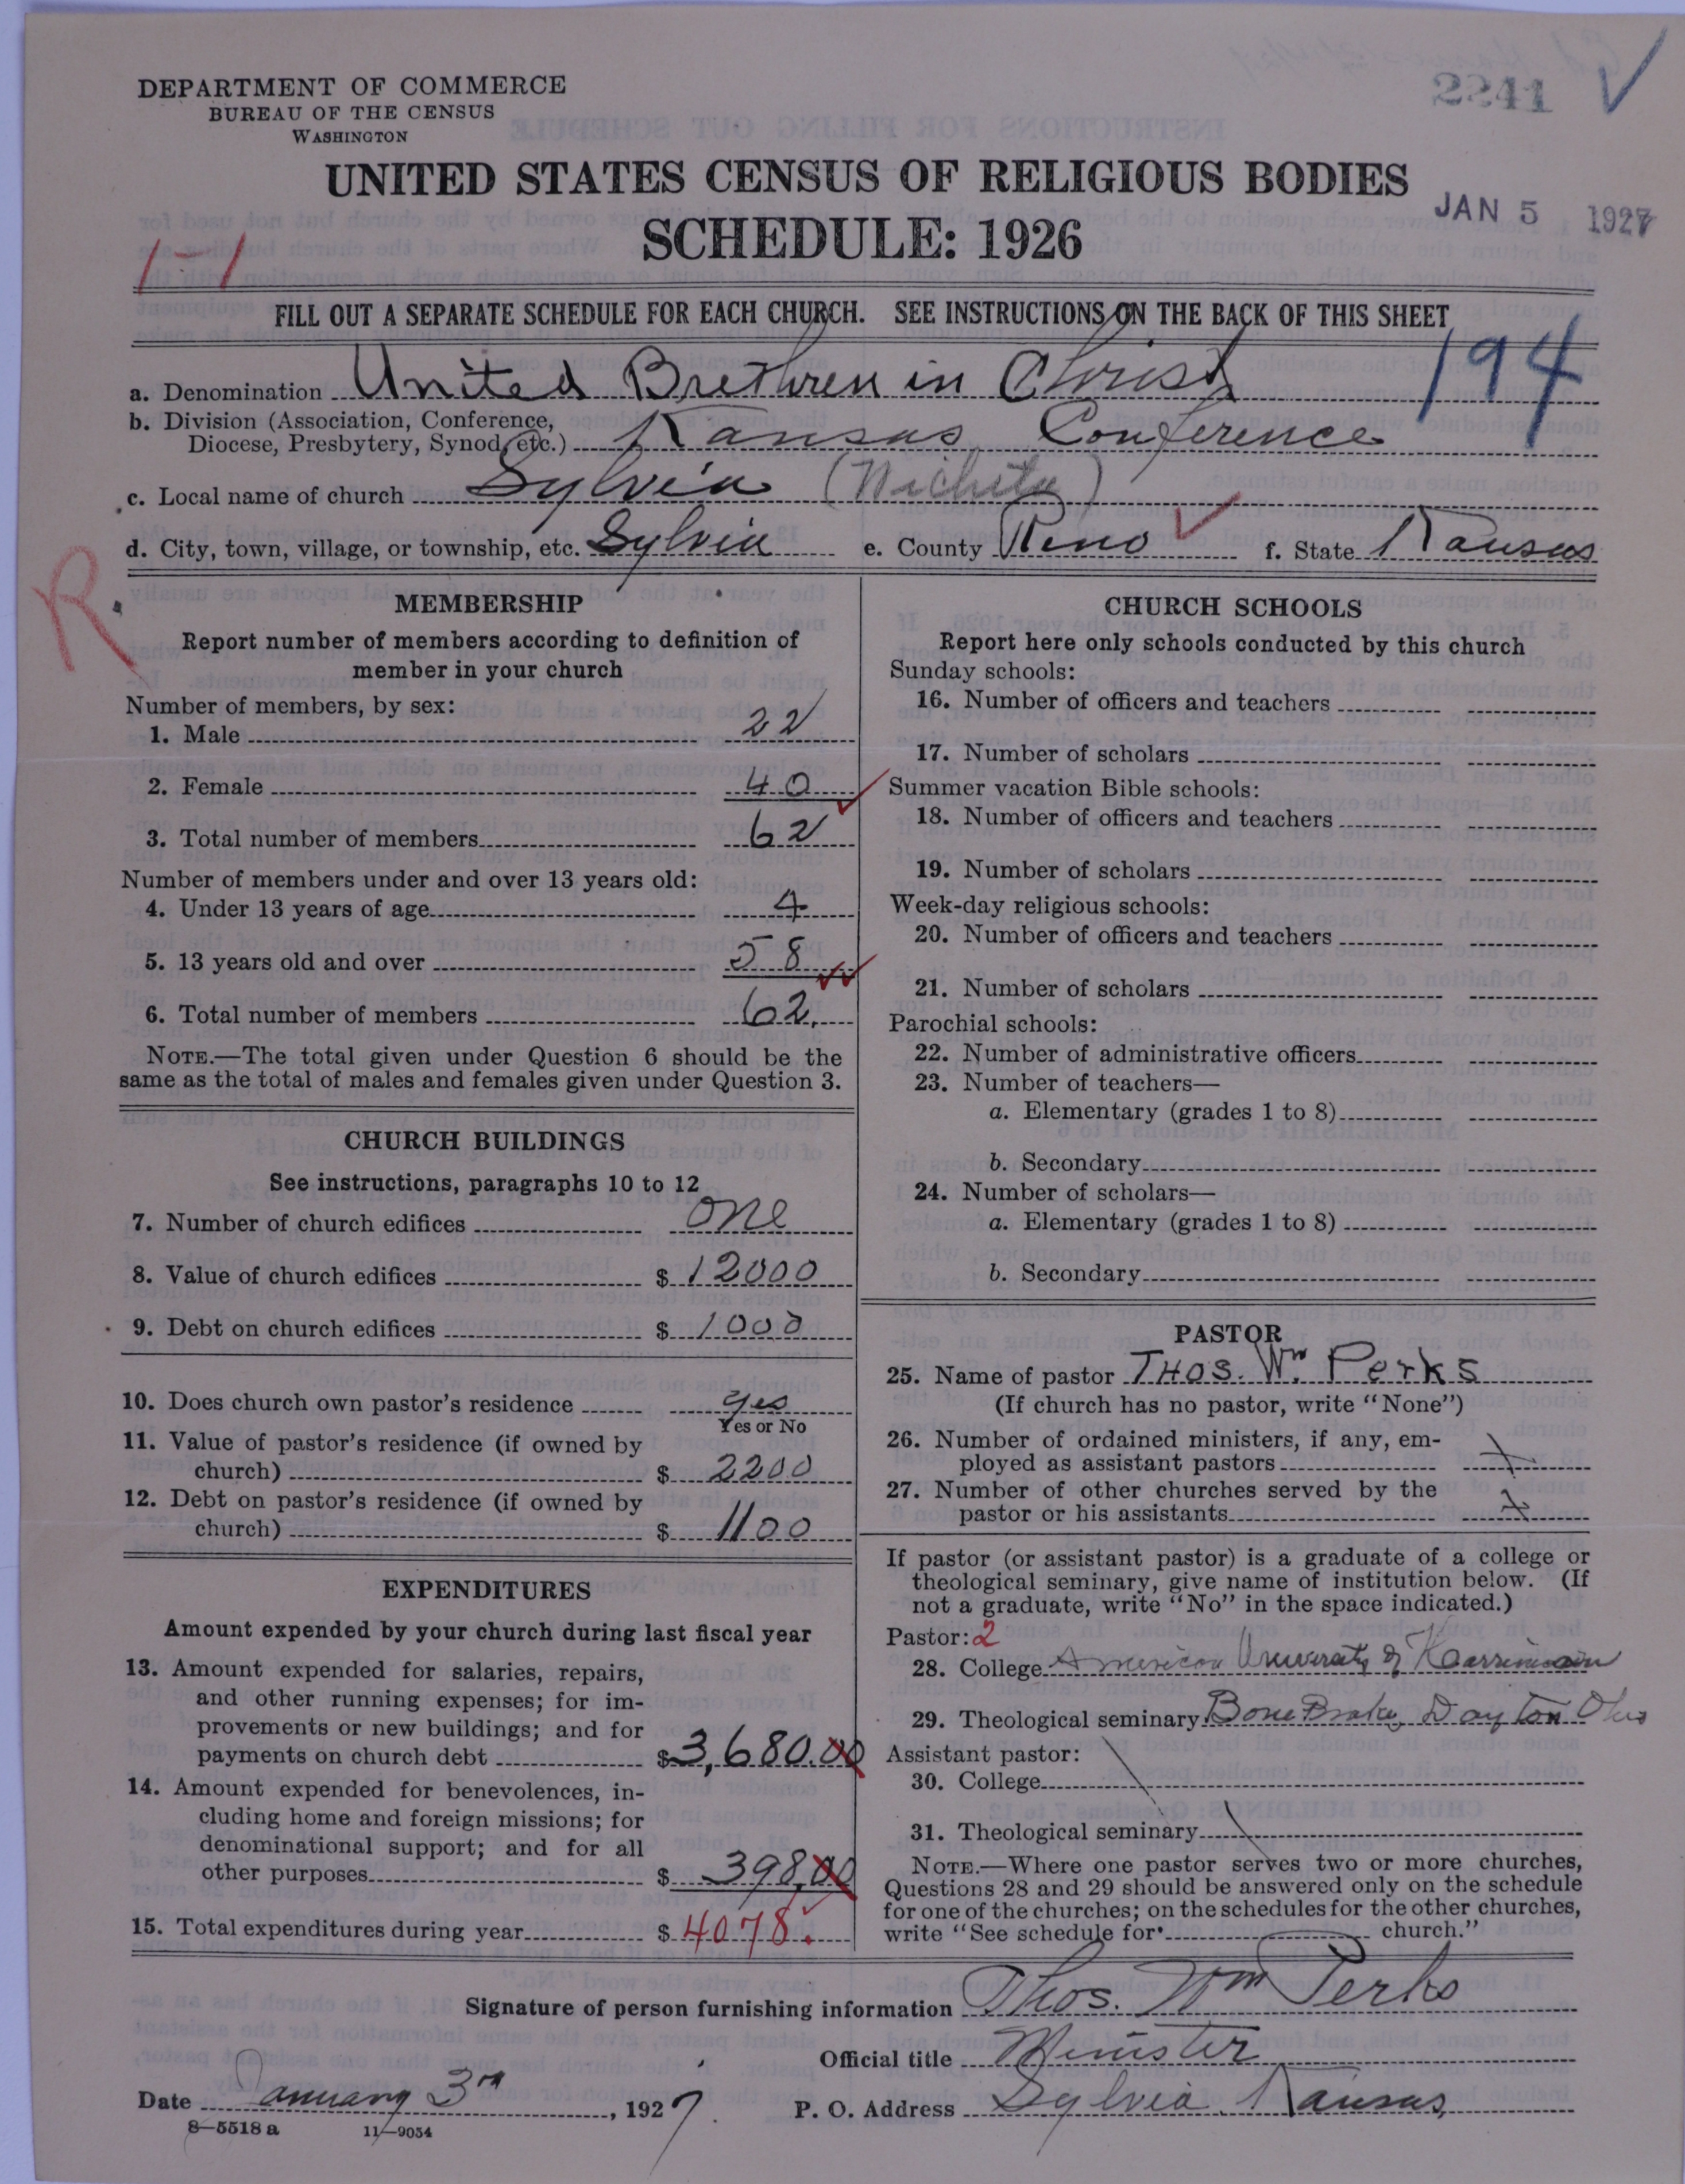 DEPARTMENT OF COMMERCE
BUREAU OF THE CENSUS
WASHINGTON
2241
UNITED STATES CENSUS OF RELIGIOUS BODIES
SCHEDULE: 1926
JAN 5 1927
1-1
FILL OUT A SEPARATE SCHEDULE FOR EACH CHURCH. SEE INSTRUCTIONS ON THE BACK OF THIS SHEET
194
a. Denomination United Brethren in Christ
b. Division (Association, Conference,
Diocese, Presbytery, Synod, etc.) Kansas Conference
c. Local name of church Sylvia (Wichita)
d. City, town, village, or township, etc. Sylvia e. County Reno f. State Kansas
R
MEMBERSHIP
Report number of members according to definition of
member in your church
Number of members, by sex:
1. Male 22
2. Female 40
3. Total number of members 62
Number of members under and over 13 years old:
4. Under 13 years of age 4
5. 13 years old and over 58
6. Total number of members 62
NOTE.—The total given under Question 6 should be the
same as the total of males and females given under Question 3.
CHURCH BUILDINGS
See instructions, paragraphs 10 to 12
7. Number of church edifices one
8. Value of church edifices $ 12000
9. Debt on church edifices $ 1000
10. Does church own pastor's residence yes
Yes or No
11. Value of pastor's residence (if owned by
church) $ 2200
12. Debt on pastor's residence (if owned by
church) $ 1100
EXPENDITURES
Amount expended by your church during last fiscal year
13. Amount expended for salaries, repairs,
and other running expenses; for im-
provements or new buildings; and for
payments on church debt $ 3,680.00
14. Amount expended for benevolences, in-
cluding home and foreign missions; for
denominational support; and for all
other purposes $ 398.00
15. Total expenditures during year $ 4078.
CHURCH SCHOOLS
Report here only schools conducted by this church
Sunday schools:
16. Number of officers and teachers
17. Number of scholars
Summer vacation Bible schools:
18. Number of officers and teachers
19. Number of scholars
Week-day religious schools:
20. Number of officers and teachers
21. Number of scholars
Parochial schools:
22. Number of administrative officers
23. Number of teachers—
a. Elementary (grades 1 to 8)
b. Secondary
24. Number of scholars—
a. Elementary (grades 1 to 8)
b. Secondary
PASTOR
25. Name of pastor THOS. Wm Perks
(If church has no pastor, write "None")
26. Number of ordained ministers, if any, em-
ployed as assistant pastors
27. Number of other churches served by the
pastor or his assistants
If pastor (or assistant pastor) is a graduate of a college or
theological seminary, give name of institution below. (If
not a graduate, write "No" in the space indicated.)
Pastor: 2
28. College American University of
29. Theological seminary Bone Brake, Dayton Ohio
Assistant pastor:
30. College
31. Theological seminary
NOTE.—Where one pastor serves two or more churches,
Questions 28 and 29 should be answered only on the schedule
for one of the churches; on the schedules for the other churches,
write "See schedule for church."
Signature of person furnishing information Thos. Wm Perks
Official title Minister
Date January 3rd, 1927. P. O. Address Sylvia, Kansas,
8-5518 a 11-9054